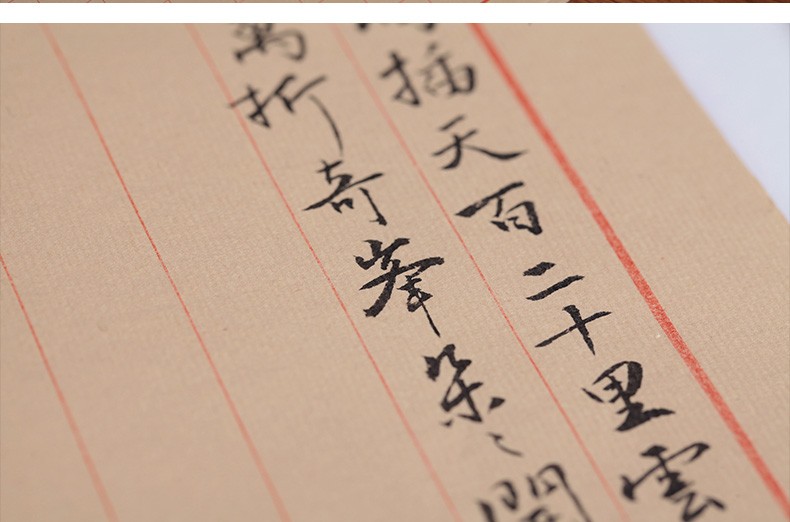 插天百二十里雲
萬折奇峯朵〻開